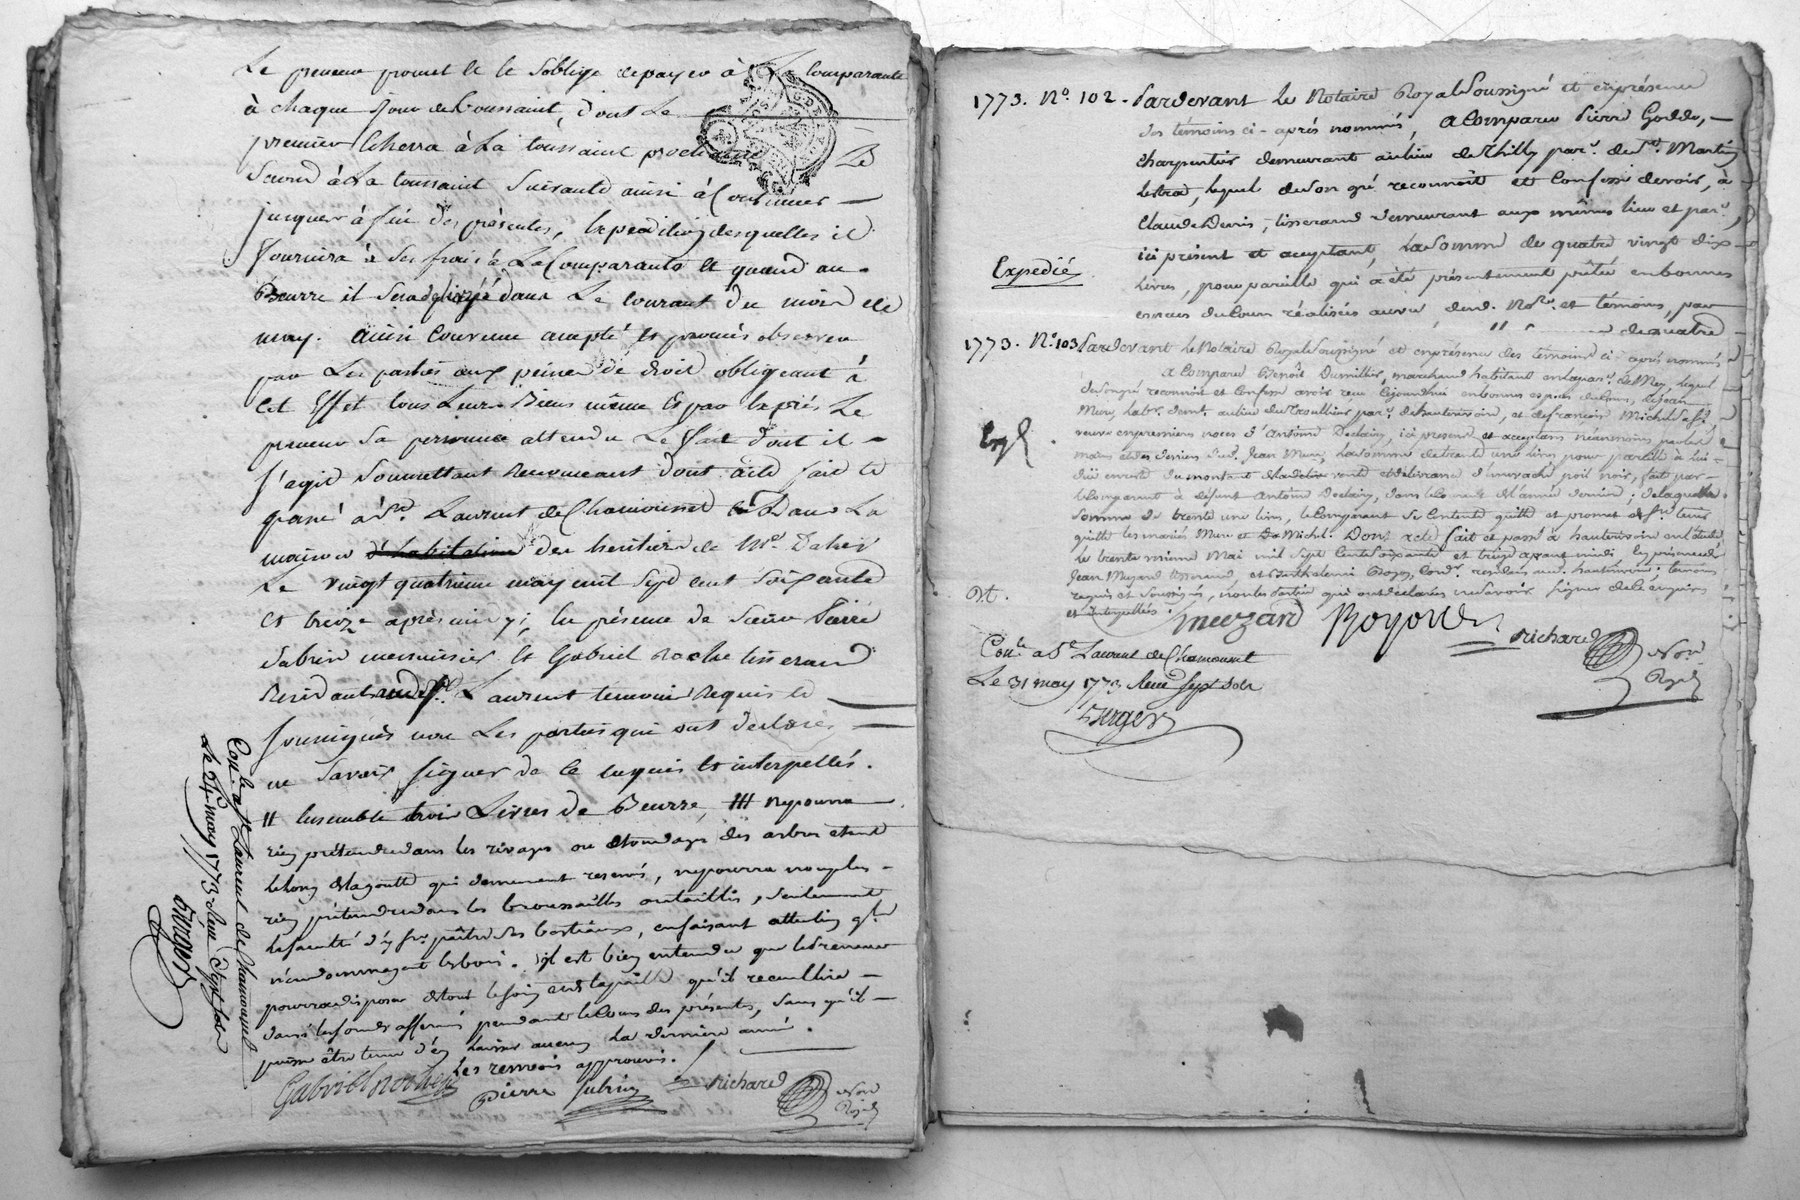 Le preneur promet et s'oblige de payer à La Comparante
à chaque jour de Toussaint, dont Le
premier Echerra à La toussaint prochaine Le
Second à La toussaint Suivante ainsi à Continuer
jusques à fin des présentes, Expedition desquelles il
fournira à Ses frais à La Comparante Et quand au
Beurre il Sera dans Le Courant du mois de
may. ainsi Convenu accepté Et promis observer
par Les parties aux peines de droit obligeant à
Cet Effet tous Leurs Biens même Et par Exprès Le
preneur Sa personne attendu Le fait dont il
s'agit Soumettant Renonceant dont acte fait et
passé à St. Laurent de Chamousset Dans La
maison d'habitation des heritiers de Me.
Le vingt quatrieme may mil Sept cent Soixante
Et treize après midy, En présence de Sieur Pierre
Subrin menuisier Et Gabriel tisserand
Residant aud. St. Laurent temoins Requis et
Soussignés non Les parties qui ont declaré
ne Savoir Signer de Ce Enquis Et interpellés.
II Ensemble trois Livres de Beurre, III Ne pourra
rien prétendre dans les rivages ou des arbres étant
le long qui demeurent reservés, ne pourra non plus
rien prétendre dans les broussailles ou taillis, Seulement
la faculté d'y fre. paître Ses bestiaux, en faisant attention qu'ils
n'endommagent les bois. Il est bien entendu que le Preneur
pourra disposer de tout le foin et de la paille qu'il recueillira
dans les fonds affermés pendant le Cours des présentes, Sans qu'il
puisse être tenu d'en Laisser aucun La derniere année.
Les renvois approuvés.
Gabriel
pierre Subrin
Richard
Nore
Royal
Conlé a St Laurent de Chamousset
Le 24 may 1773 Reçu Sept Sols
1773. No. 102. Pardevant Le Notaire Royal Soussigné et en présence
des témoins ci-après nommés, a Comparu Pierre Godde,
Charpentier demeurant au lieu de Thilly parr. de St. Martin
Lestra, lequel de Son gré reconnoît et Confesse devoir, à
Claude Denis, tisserand demeurant aux mêmes lieu et parr.
ici présent et acceptant, La Somme de quatre vingt dix
Livres, pour pareille qui a été présentement prêtée en bonnes
especes du Cours réalisées au vu, dud. Nore. et témoins, par
de quatre
Expedié
1773. No. 103 Pardevant le Notaire Royal Soussigné et en présence des témoins ci-après nommés
a Comparu Benoît Dumillier, marchand habitant en la parr. de Mey, lequel
de Son gré reconnoit et Confesse avoir reçu Cejourdhui en bonnes especes du Cours, de Jean
Mure, Labr. demt. au lieu du parr. d'hauterivoire, et de françoise Michel Sa fe.
veuve en premieres noces d'Antoine ici présent et acceptans néanmoins par les
mains et des deniers dud. Jean Mure, La Somme de trente une livres pour pareille à lui
düe montant de la vente et délivrance d' poil noir, fait par
le Comparant à défunt Antoine dans l'année derniere; de laquelle
Somme de trente une livres, le Comparant Se Contente quitte et promet fre. tenir
quitte les mariés Mure et De Michel. Dont acte fait et passé à hauterivoire en l'étude
le trente unieme Mai mil Sept Cents Soixante et treize avant midi En présence de
Jean tisserand, et Barthelemi Boyon, Cord. residans aud. hauterivoire témoins
requis et Soussignés, non les Parties qui ont déclaré ne Savoir Signer de Ce Enquis
et interpellés.
Boyon
Richard
Nore
Royal
Conlé a St Laurent de Chamousset
Le 31 may 1773 Reçu Sept Sols